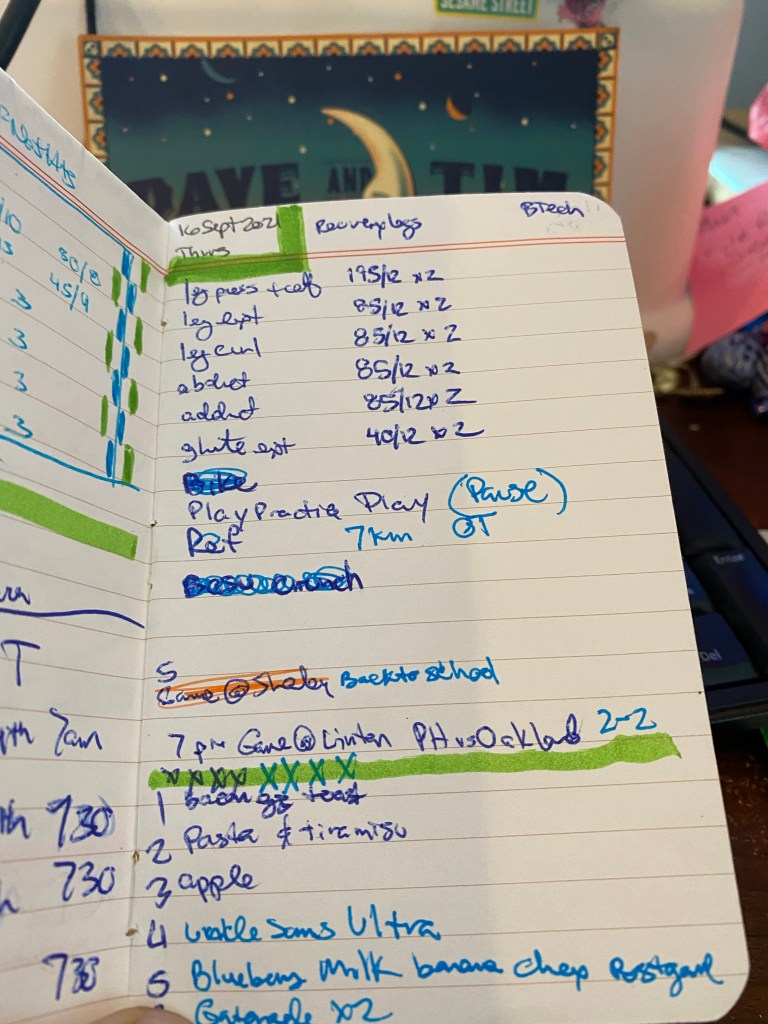 SESAME STREET
DAVE AND TIM
10
80/8
45/9
3
3
3
3
16 Sept 2021
Thurs
Recovery legs
BTech
leg press + calf 195/12 x 2
leg ext 85/12 x 2
leg curl 85/12 x 2
abduct 85/12 x 2
adduct 85/12 x 2
glute ext 40/12 x 2
Bike
Play Practice Play (Pause)
Ref 7km OT
crunch
5
Game @ Back to school
7 pm Game @ Linton PH vs Oakland 2-2
x x x x X X X X
1 bacon egg toast
2 Pasta & tiramisu
3 apple
4 Ultra
5 Blueberry Milk banana Postgame
Gatorade x2
T
7am
730
730
730
Enter
Del